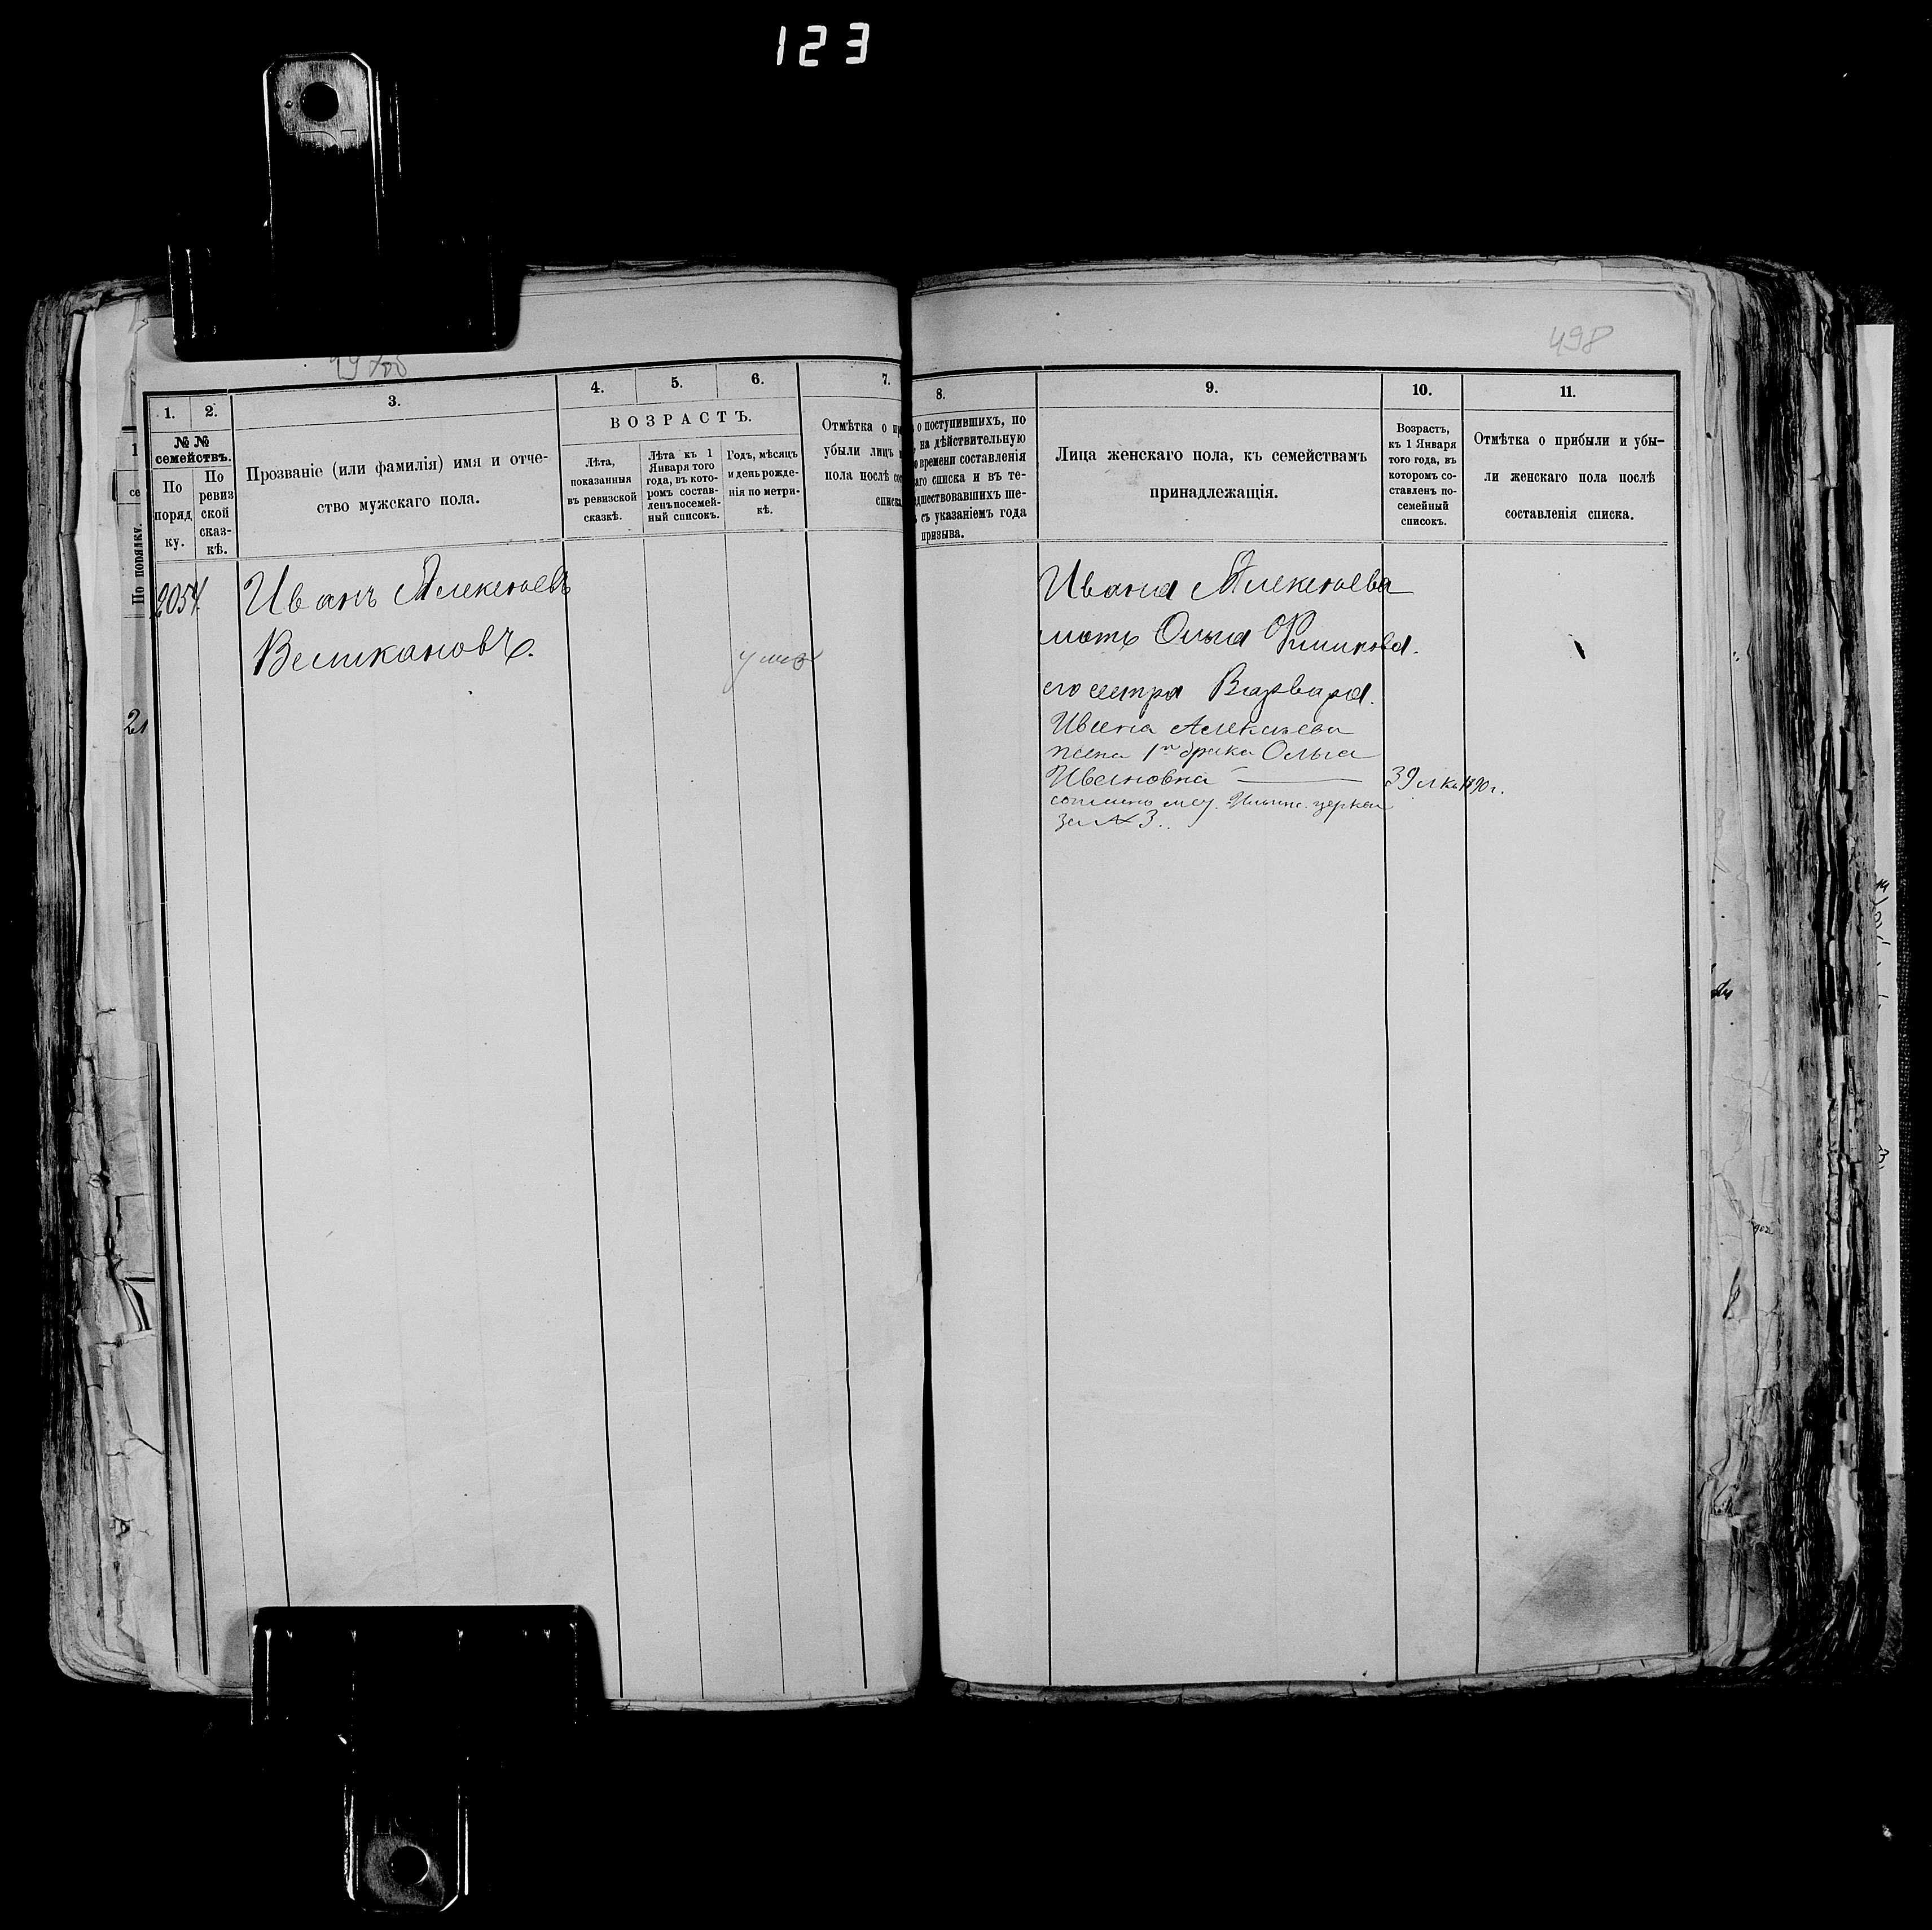 123
498
1. 2. 3. 4. 5. 6. 7.
№ № семействъ.
По поряд ку.
По ревиз ской сказ- кѣ.
Прозваніе (или фамилія) имя и отче-
ство мужскаго пола.
ВОЗРАСТЪ.
Лѣта,
показанныя
въ ревизской
сказкѣ.
Лѣта къ 1
Января того
года, въ кото-
ромъ состав-
ленъ посемей-
ный списокъ.
Годъ, мѣсяцъ
и день рожде-
нія по метри-
кѣ.
Отмѣтка о
убыли лицъ
пола послѣ
списка
2057
Иванъ Алексѣевъ
Великановъ.
умеръ
По порядку.
21
8. 9. 10. 11.
о поступившихъ, по
на дѣйствительную
времени составленія
списка и въ те-
шествовавшихъ ше-
съ указаніемъ года
призыва.
Лица женскаго пола, къ семействамъ
принадлежащія.
Возрастъ,
къ 1 Января
того года, въ
которомъ со-
ставленъ по-
семейный
списокъ.
Отмѣтка о прибыли и убы-
ли женскаго пола послѣ
составленія списка.
Ивана Алексѣева
мать Ольга Филипова.
его сестра Варвара.
Ивана Алексѣева
жена 1го брака Ольга
Ивановна 39 л къ 1890 г.
церкви
за № 3.